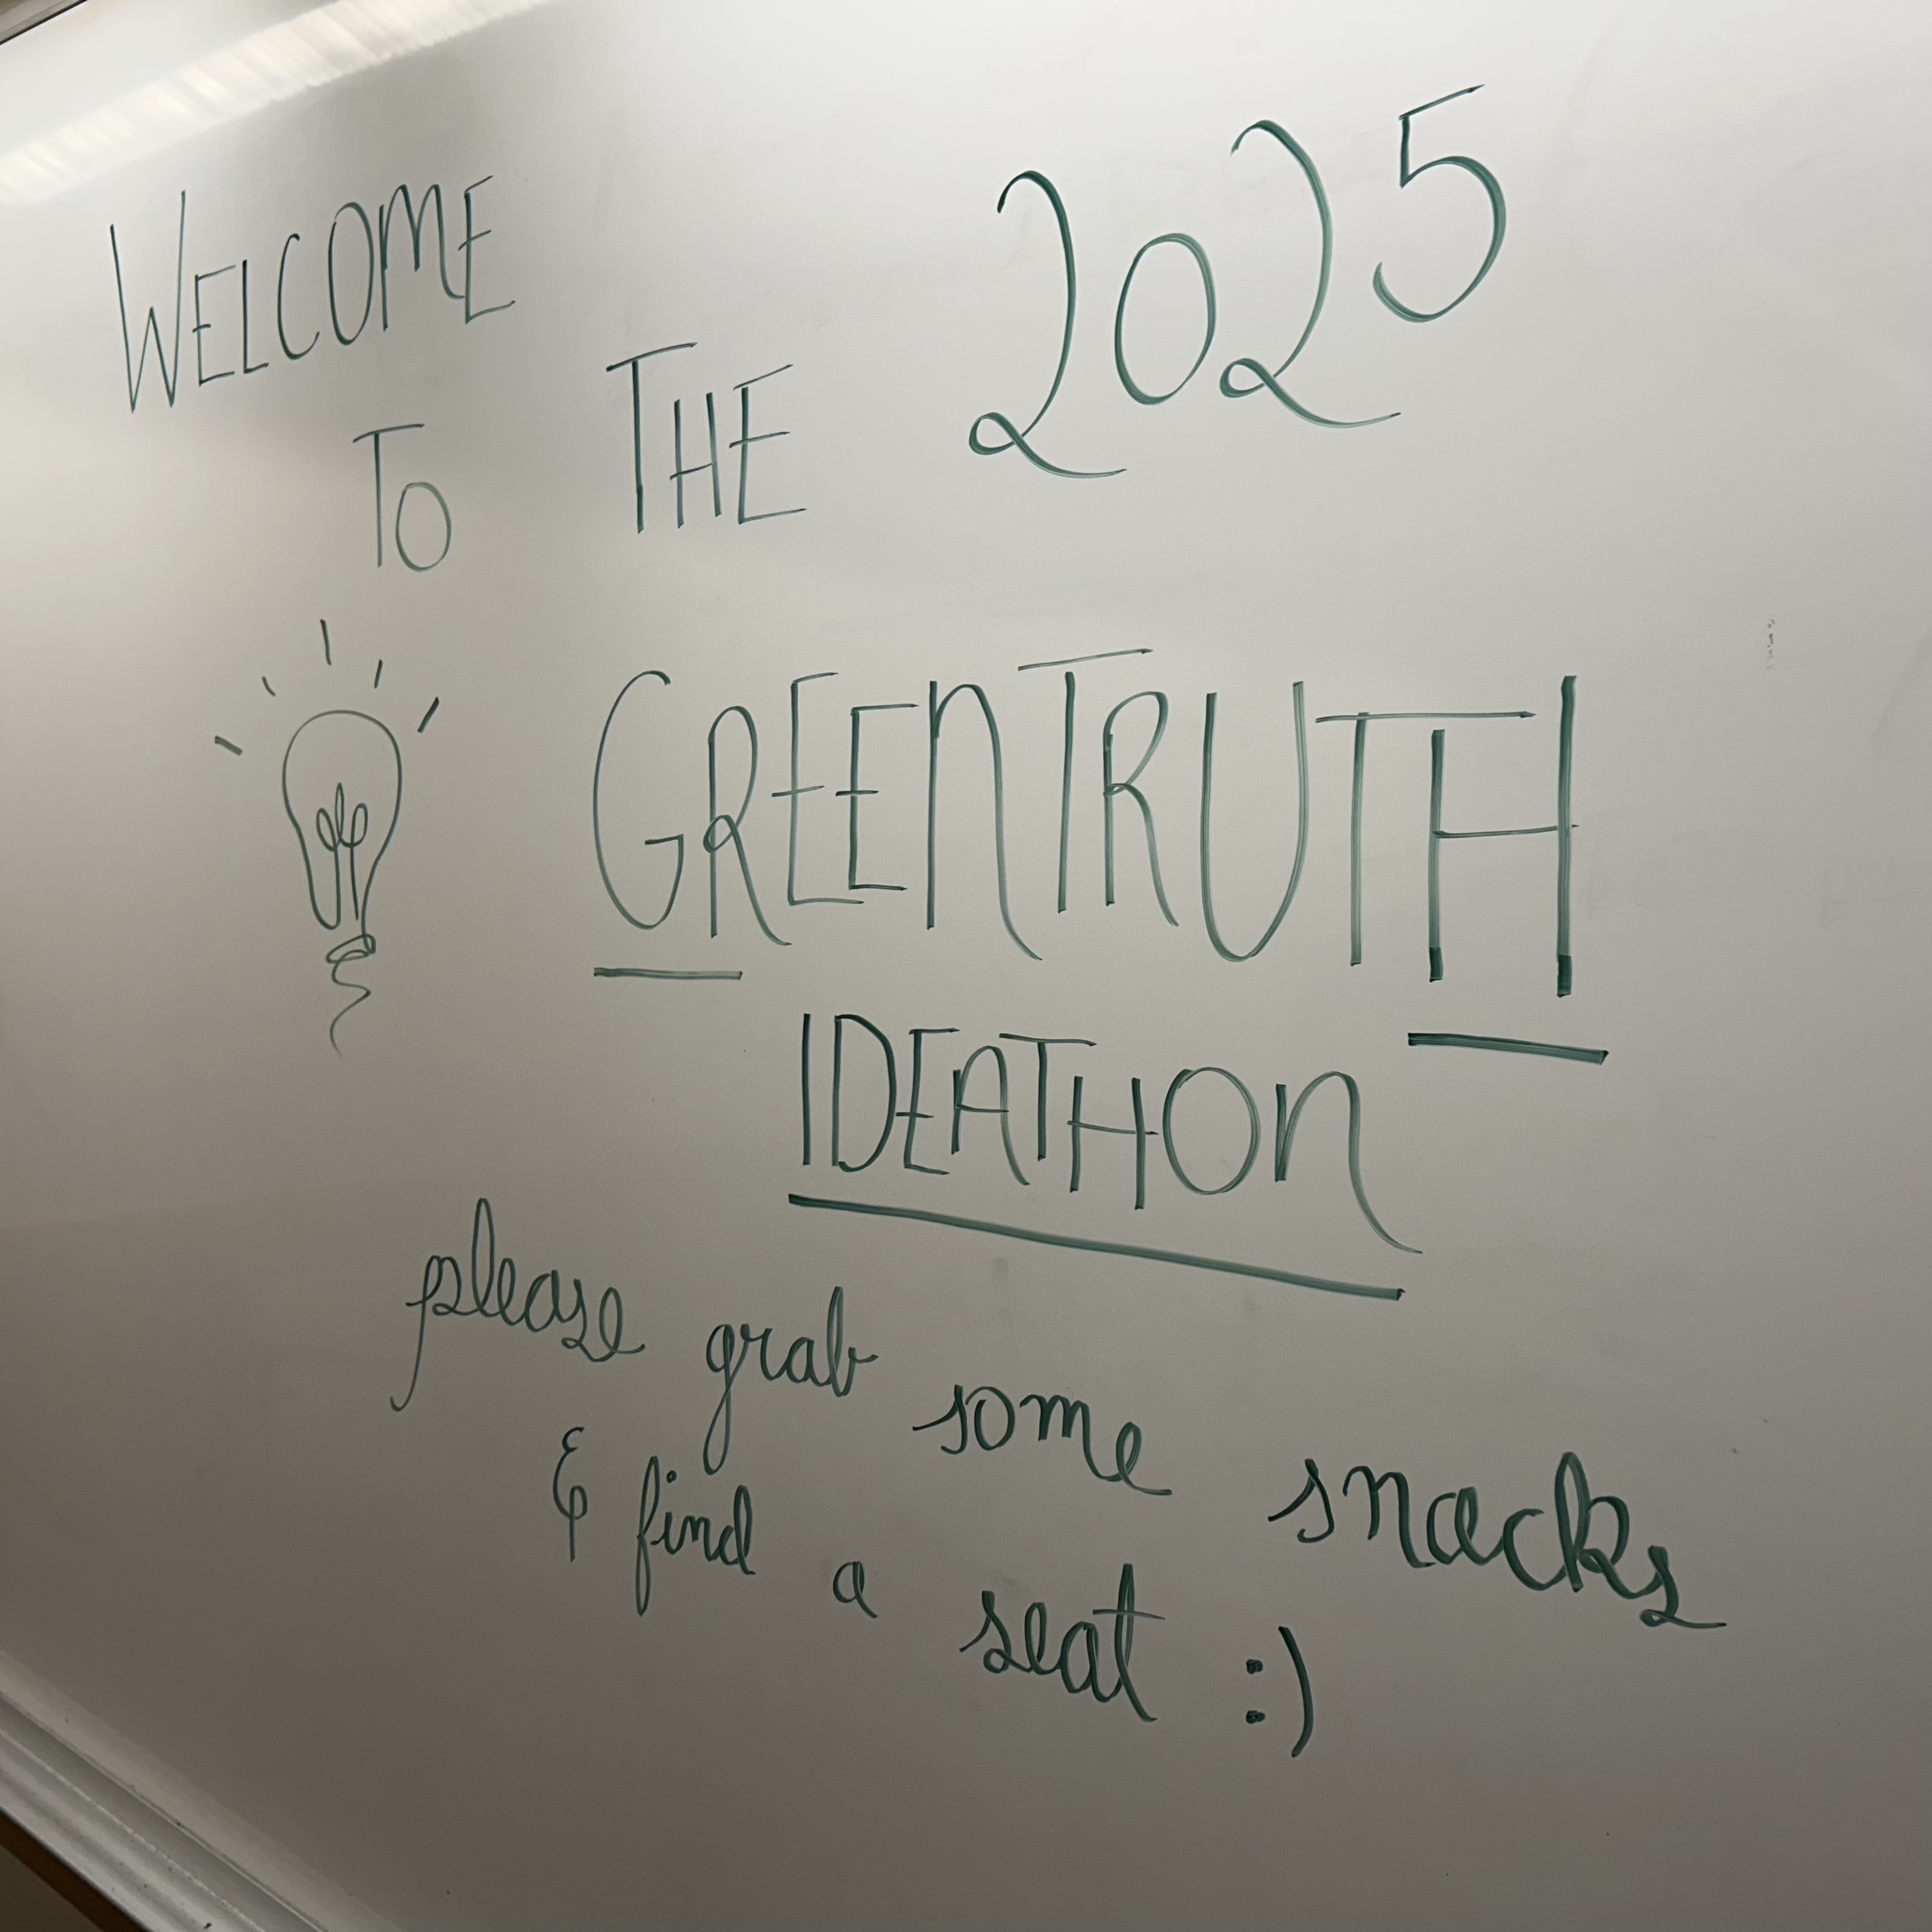 WELCOME
TO THE 2025
GREENTRUTH
IDEATHON
please grab some snacks
& find a seat :)